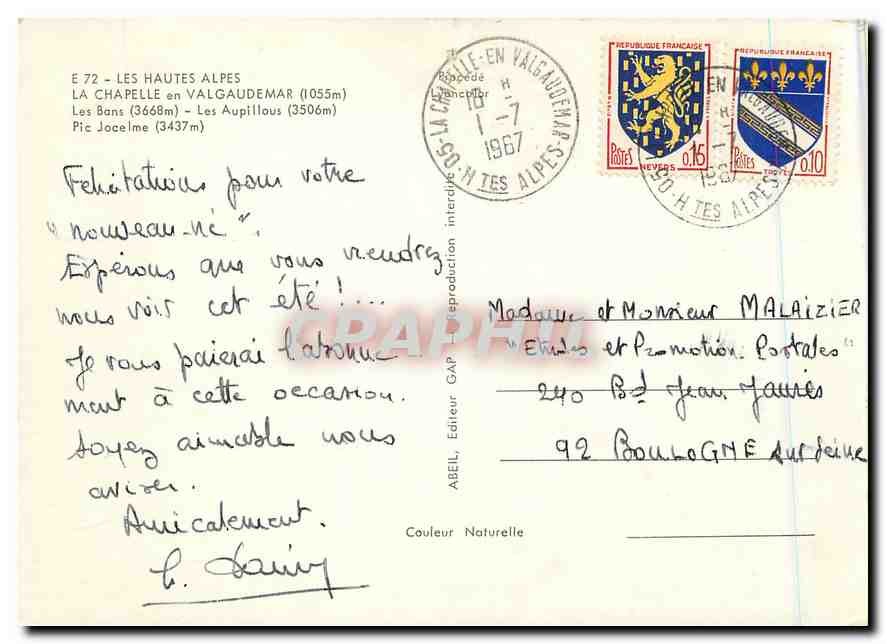 E 72 - LES HAUTES ALPES
LA CHAPELLE en VALGAUDEMAR (1055m)
Les Bans (3668m) - Les Aupillous (3506m)
Pic Jocelme (3437m)
Procédé
Lyoncolor
LA CHAPELLE-EN VALGAUDEMAR
18 H
1 -7
1967
05 - H TES ALPES
REPUBLIQUE FRANÇAISE
POSTES 0,15
NEVERS
REPUBLIQUE FRANÇAISE
POSTES 0,10
TROYES
EN
1967
05 - H TES ALPES
Felicitations pour votre
"nouveau-né".
Espérons que vous viendrez
nous voir cet été !....
Je vous paierai l'abonne
ment à cette occasion.
Soyez aimable nous
aviser.
Amicalement.
ABEIL, Editeur GAP - Reproduction interdite
CPAPHIL
Madame et Monsieur MALAIZIER
"Etudes et Promotion Postales"
240 Bd Jean Jaurès
92 BOULOGNE sur Seine
Couleur Naturelle